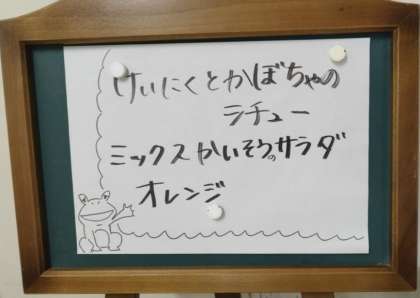 けいにくとかぼちゃの
シチュー
ミックスかいそうのサラダ
オレンジ